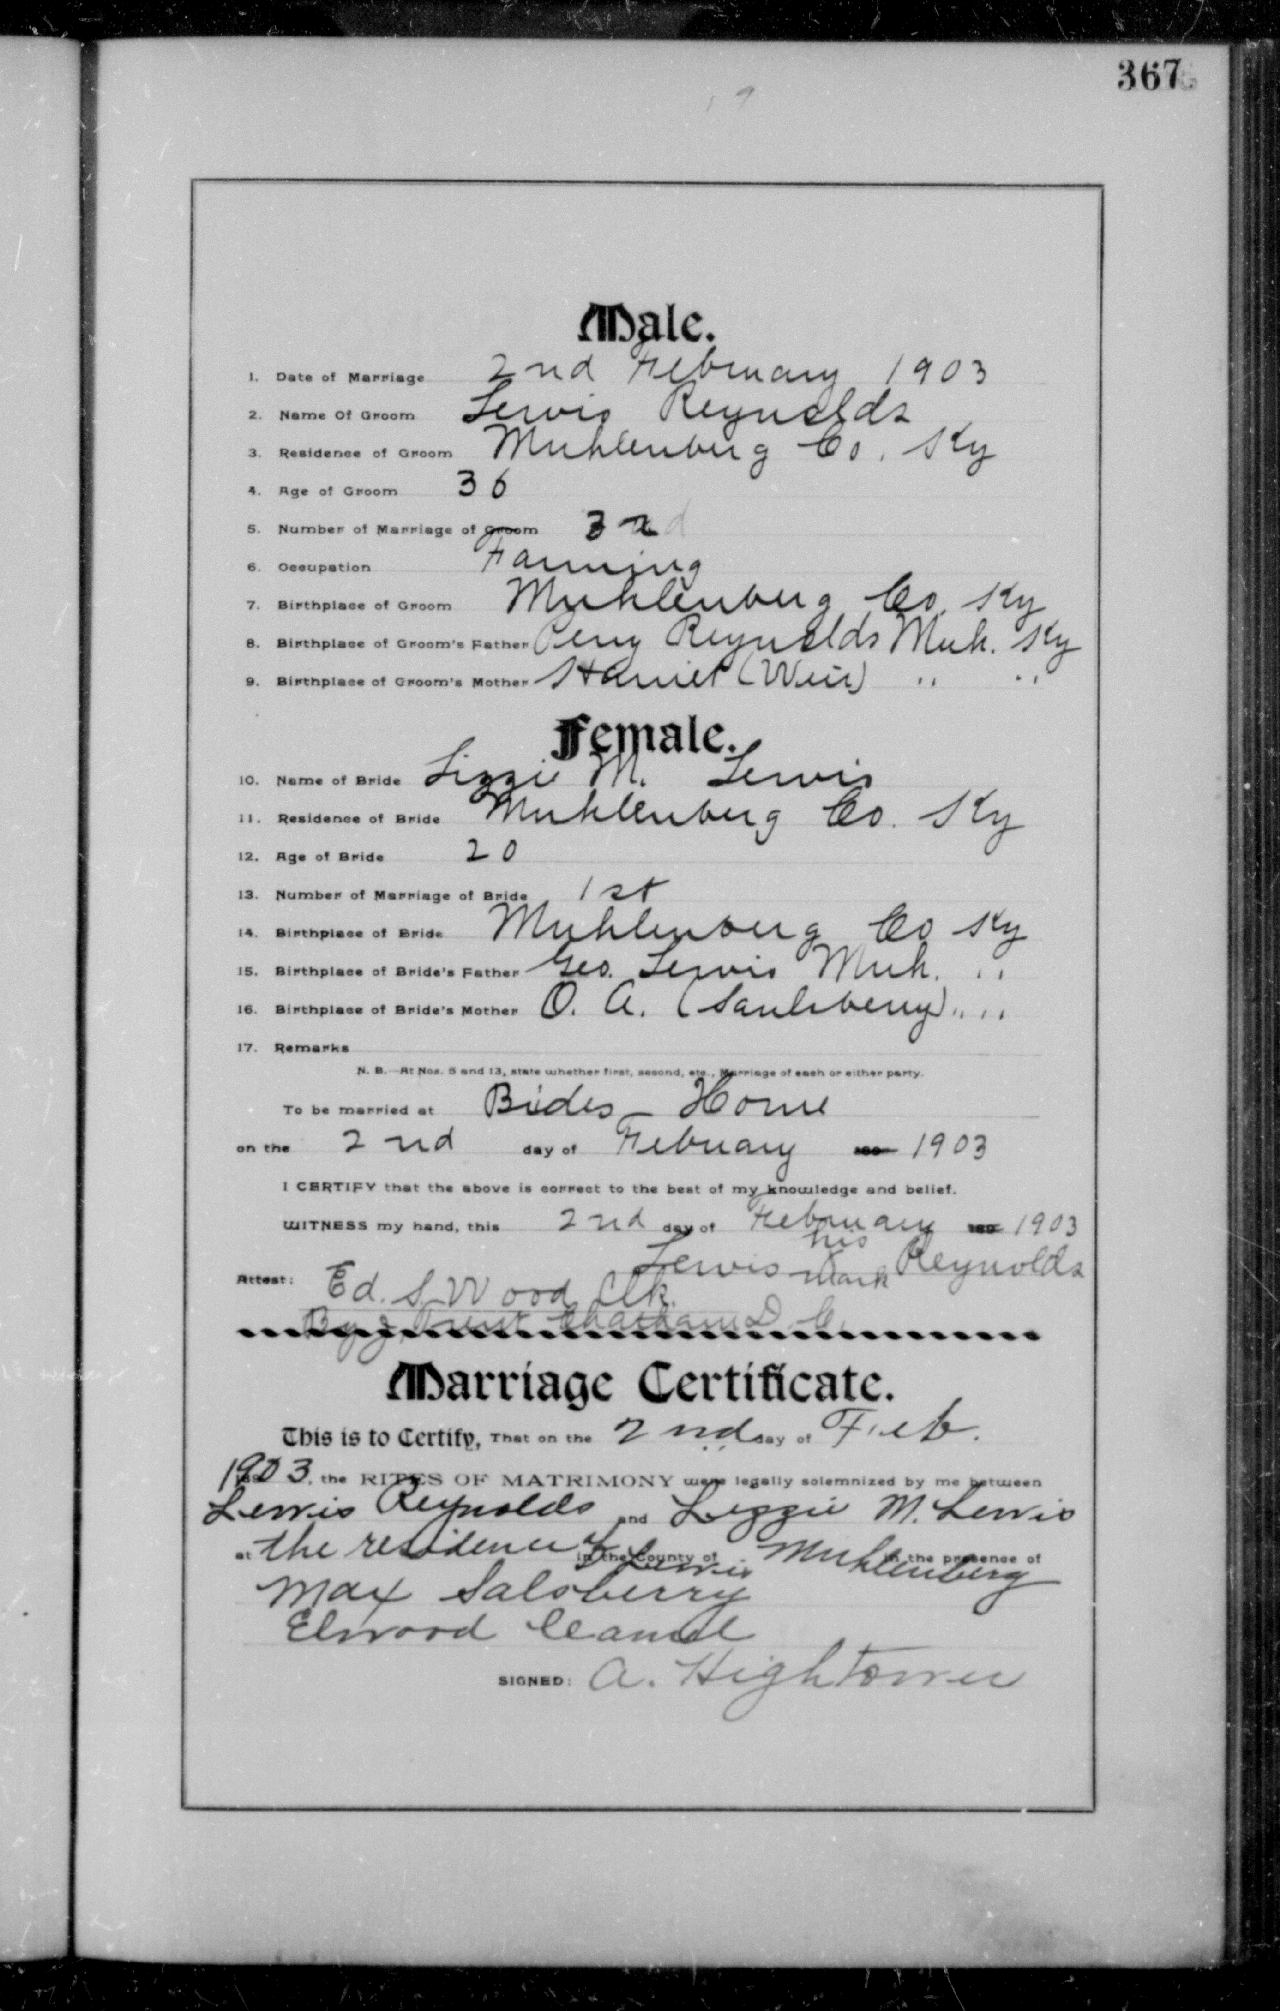 367
Male.
1. Date of Marriage 2nd February 1903
2. Name Of Groom Lewis Reynolds
3. Residence of Groom Muhlenburg Co. Ky
4. Age of Groom 36
5. Number of Marriage of Groom
6. Occupation Farming
7. Birthplace of Groom Muhlenburg Co. Ky
8. Birthplace of Groom's Father Perry Reynolds Muh. Ky
9. Birthplace of Groom's Mother Harriet (Weir) " "
Female.
10. Name of Bride Lizzie M. Lewis
11. Residence of Bride Muhlenburg Co. Ky
12. Age of Bride 20
13. Number of Marriage of Bride 1st
14. Birthplace of Bride Muhlenburg Co Ky
15. Birthplace of Bride's Father Geo. Lewis Muh. "
16. Birthplace of Bride's Mother O. A. (Saulsberry) " "
17. Remarks
N. B.—At Nos. 5 and 13, state whether first, second, etc., Marriage of each or either party.
To be married at Brides Home
on the 2nd day of Februay 1903
I CERTIFY that the above is correct to the best of my knowledge and belief.
WITNESS my hand, this 2nd day of February 1903
his
Lewis x Reynolds
mark
Attest: Ed. S. Wood Clk.
By J. Trent Chatham D. C.
Marriage Certificate.
This is to Certify, That on the 2nd day of Feb.
1903, the RITES OF MATRIMONY were legally solemnized by me between
Lewis Reynolds and Lizzie M. Lewis
at the residence of Lewis in the County of Muhlenberg in the presence of
Max Salsberry
Elwood
SIGNED: A. Hightower